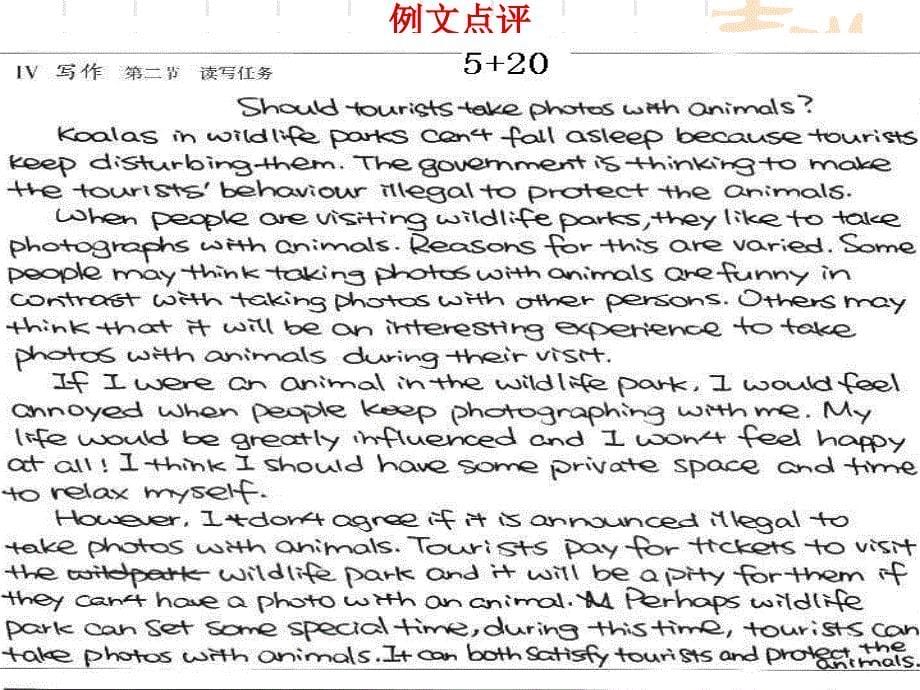 例文点评
IV 写作 第二节 读写任务
5+20
Should tourists take photos with animals?
Koalas in wildlife parks can't fall asleep because tourists
keep disturbing them. The government is thinking to make
the tourists' behaviour illegal to protect the animals.
When people are visiting wildlife parks, they like to take
photographs with animals. Reasons for this are varied. Some
people may think taking photos with animals are funny in
contrast with taking photos with other persons. Others may
think that it will be an interesting experience to take
photos with animals during their visit.
If I were an animal in the wildlife park, I would feel
annoyed when people keep photographing with me. My
life would be greatly influenced and I won't feel happy
at all! I think I should have some private space and time
to relax myself.
However, I don't agree if it is announced illegal to
take photos with animals. Tourists pay for tickets to visit
the wildpark wildlife park and it will be a pity for them if
they can't have a photo with an animal. Perhaps wildlife
park can set some special time, during this time, tourists can
take photos with animals. It can both satisfy tourists and protect the
animals.